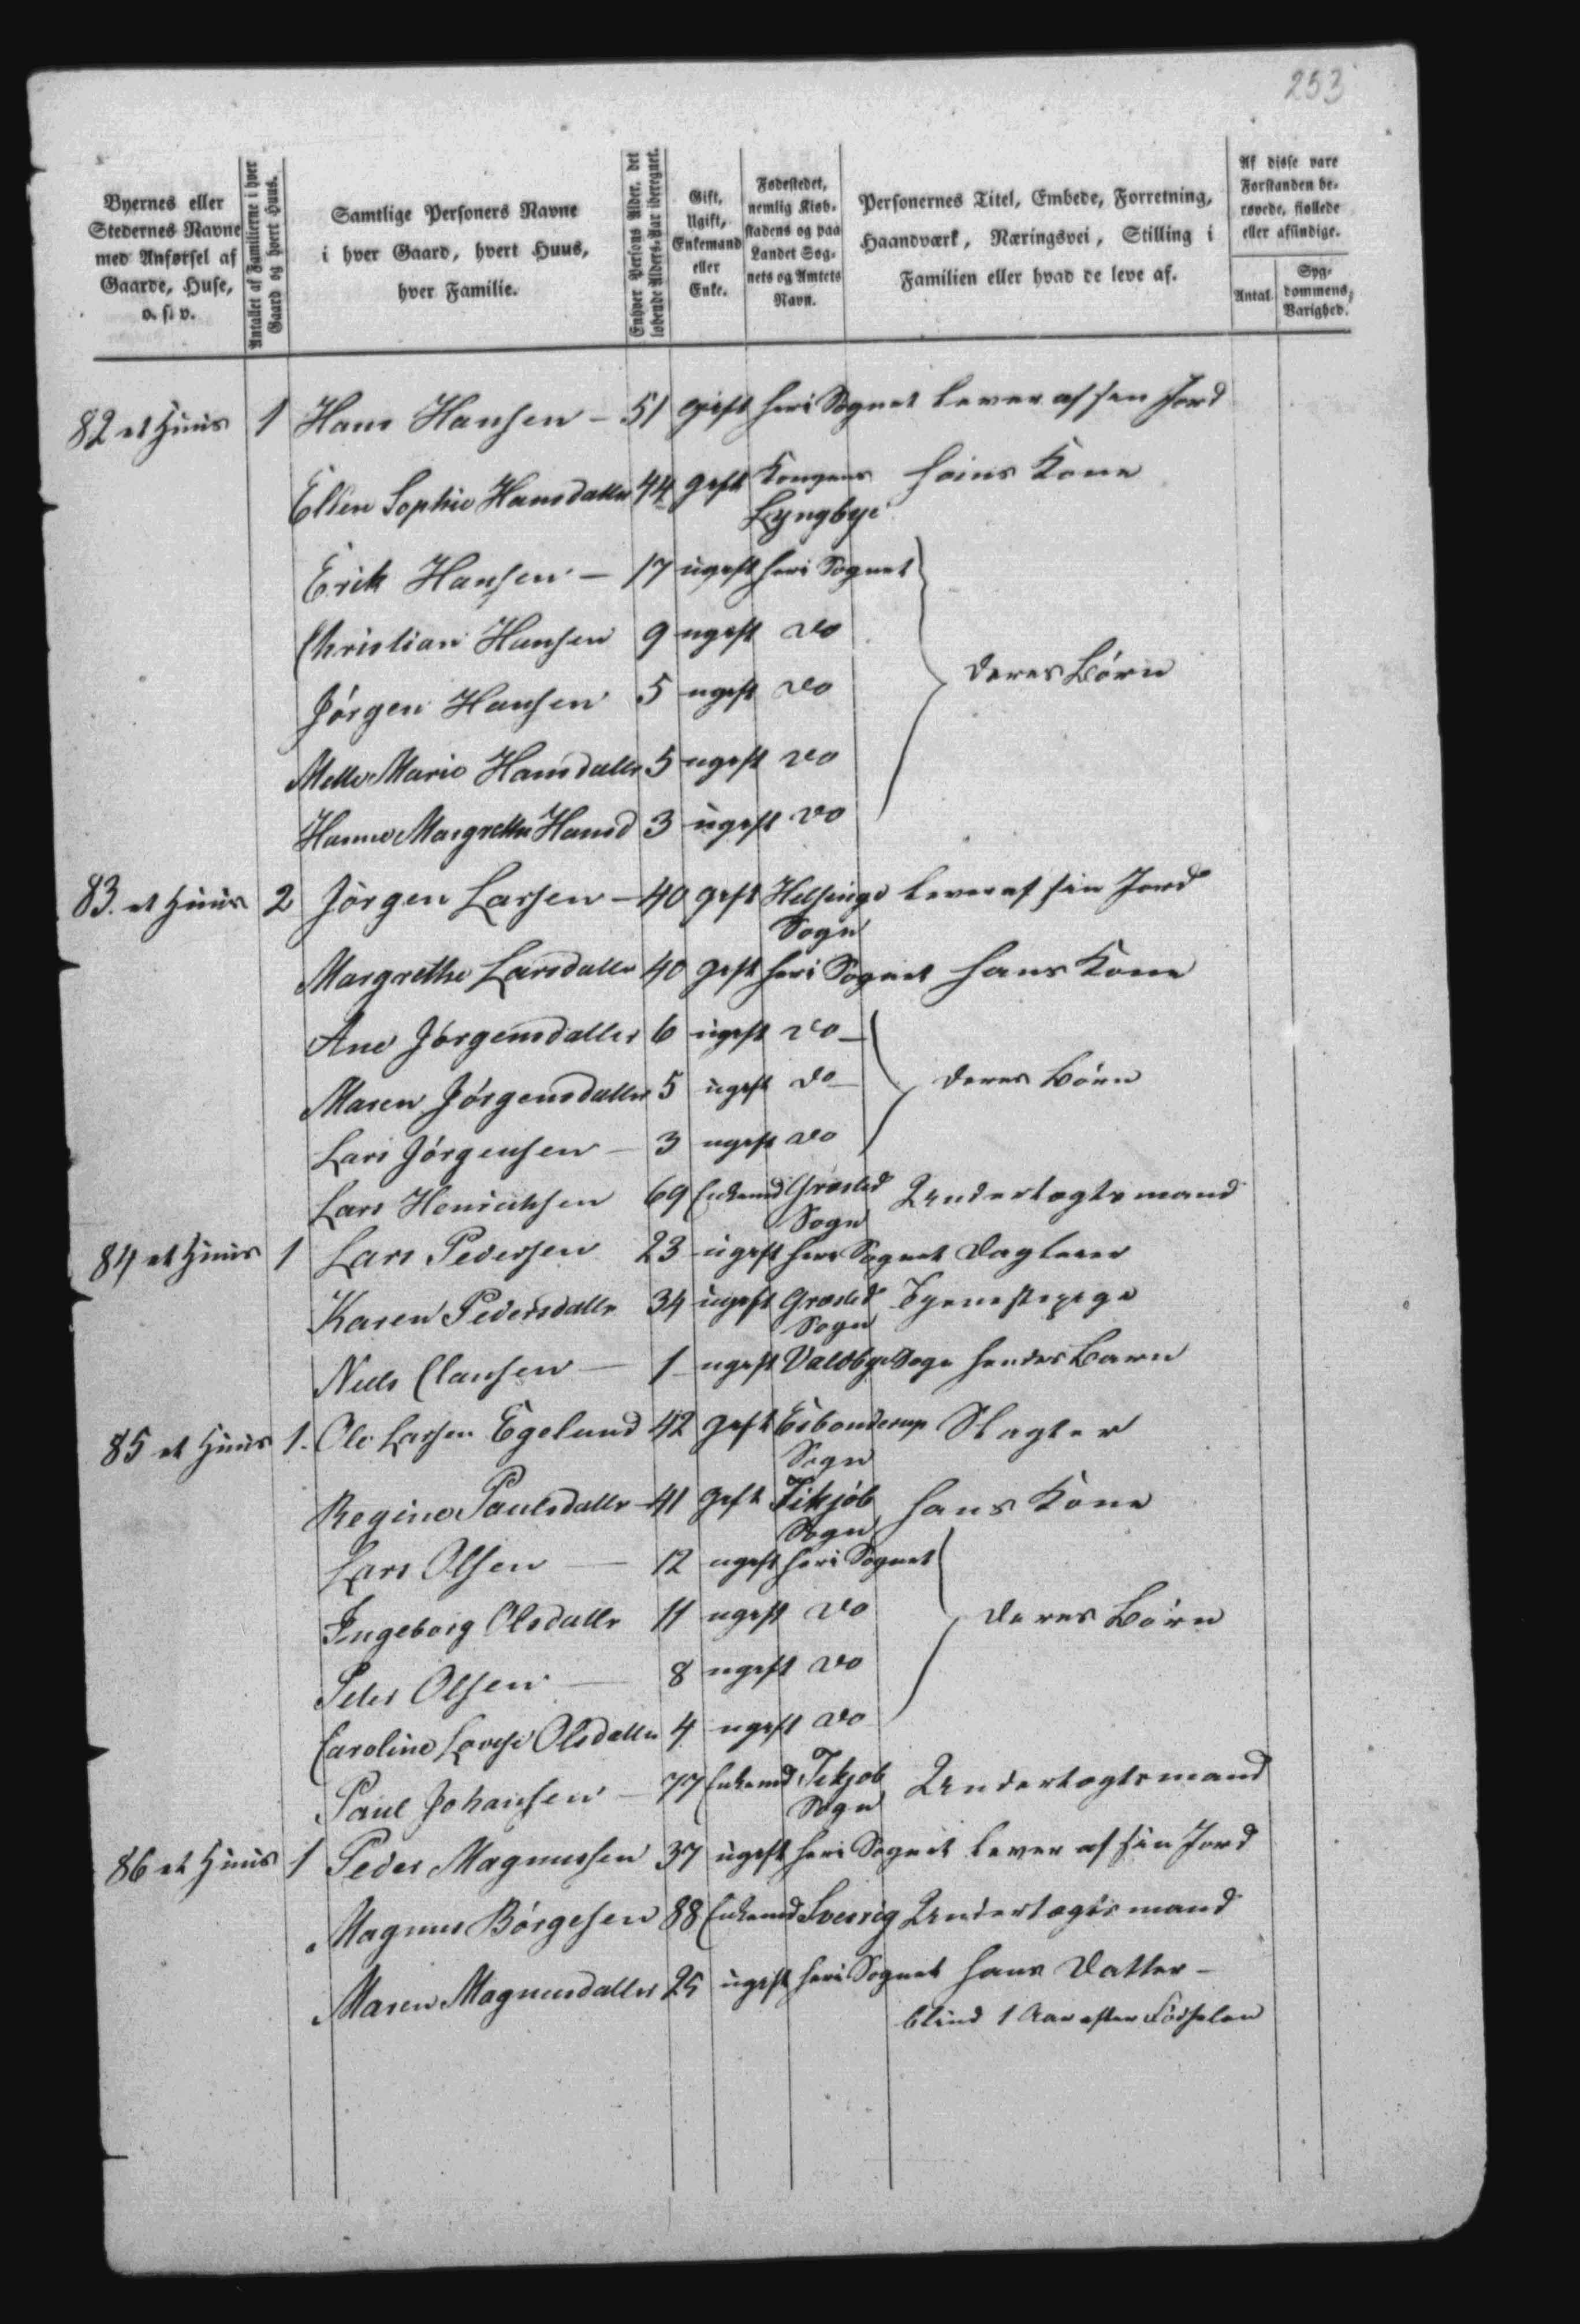 253
Byernes eller Stedernes Navne med Anførsel af Gaarde, Huse, o. s. v.
Antallet af Familierne i hver Gaard og hvert Huus.
Samtlige Personers Navne i hver Gaard, hvert Huus, hver Familie.
Enhver Persons Alder, det løbende Alders-Aar iberegnet.
Gift, Ugift, Enkemand eller Enke.
Fødestedet, nemlig Kiøbstadens og paa Landet Sognets og Amtets Navn.
Personernes Titel, Embede, Forretning, Haandværk, Næringsvei, Stilling i Familien eller hvad de leve af.
Af disse vare Forstanden berøvede, fiollede eller afsindige.
Antal.
Sygdommens Varighed.
82 et Huus 1 Hans Hansen – 51 gift heri Sognet Lever af sin Jord
Ellen Sophie Hansdatter 44 gift Kongens hans Kone
Lyngbye
Erik Hansen – 17 ugift heri Sognet
Christian Hansen 9 ugift do
Jörgen Hansen 5 ugift do deres Börn
Mette Marie Hansdatter 5 ugift do
Hanne Margrethe Hansd 3 ugift do
83. et Huus 2 Jörgen Larsen – 40 gift Helsinge Lever af sin Jord
Sogn
Margrethe Larsdatter 40 gift heri Sognet hans Kone
Ane Jörgensdatter 6 ugift do –
Maren Jörgensdatter 5 ugift do – deres Börn
Lars Jörgensen – 3 ugift do
Lars Henricksen 69 Enkemd Græsted Undertagtsmand
Sogn
84 et Huus 1 Lars Pedersen 23 ugift heri Sognet Dagleier
Karen Pedersdatter 34 ugift Græsted Tjenestepige
Sogn
Niels Clausen – 1 ugift Valdbye Sogn hendes Barn
85 et Huus 1. Ole Larsen Egelund 42 gift Esbonderup Slagter
Sogn
Regine Paulsdatter – 41 gift Tikjöb hans Kone
Sogn
Lars Olsen – 12 ugift heri Sognet
Ingeborg Olsdatter 11 ugift do deres Börn
Peter Olsen – 8 ugift do
Caroline Lovise Olsdatter 4 ugift do
Paul Johansen – 77 Enkemd Tikjöb Undertagtsmand
Sogn
86 et Huus 1 Peder Magnussen 37 ugift heri Sognet Lever af sin Jord
Magnus Börgesen 88 Enkemd Sverrig Undertagtsmand
Maren Magnusdatter 25 ugift heri Sognet hans Datter –
blind 1 Aar efter Födselen